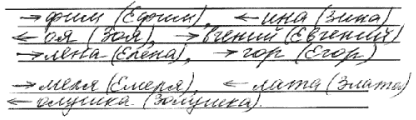 →фим (Ефим), ←ина (Зина)
←оя (Зоя), →вгений (Евгений)
→лена (Елена), →гор (Егор)
→меля (Емеля), ←лата (Злата)
←олушка (Золушка).